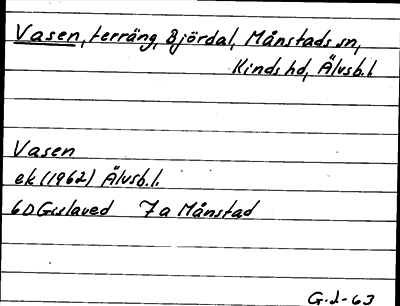 Vasen, terräng, Björdal, Månstads sn,
Kinds hd, Älvsb.l
Vasen
ek (1962) Älvsb.l.
6D Gislaved 7a Månstad
G.J-63